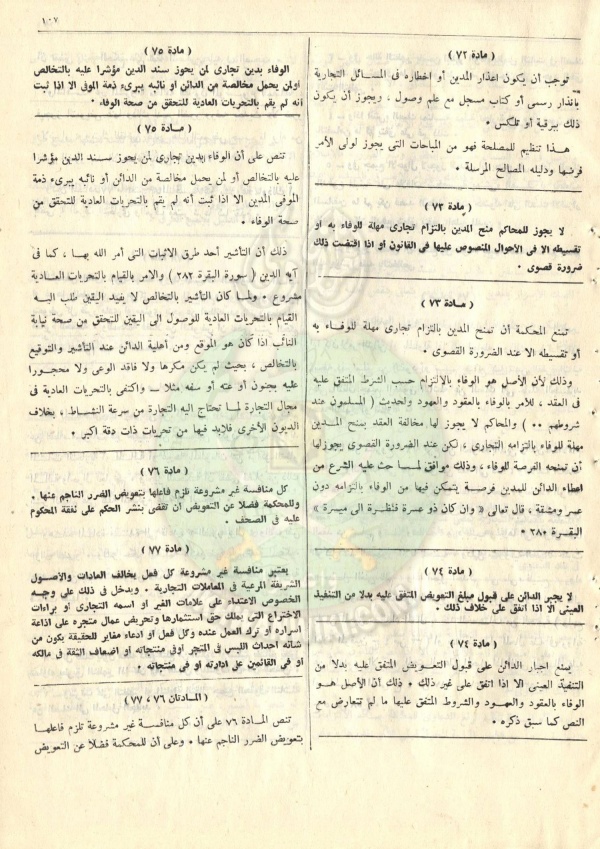 ١٠٧
( مادة ٧٢ )
توجب أن يكون اعذار المدين أو اخطاره فى المسائل التجارية
بانذار رسمى أو كتاب مسجل مع علم وصول ، ويجوز أن يكون
ذلك ببرقية أو تلكس .
هذا تنظيم للمصلحة فهو من المباحات التى يجوز لولى الأمر
فرضها ودليله المصالح المرسلة .
( مادة ٧٣ )
لا يجوز للمحاكم منح المدين بالتزام تجارى مهلة للوفاء به او
تقسيطه الا فى الاحوال المنصوص عليها فى القانون أو اذا اقتضت ذلك
ضرورة قصوى .
( مادة ٧٣ )
تمنع المحكمة أن تمنح المدين بالتزام تجارى مهلة للوفاء به
أو تقسيطه الا عند الضرورة القصوى .
وذلك لأن الأصل هو الوفاء بالالتزام حسب الشرط المتفق عليه
فى العقد ، للأمر بالوفاء بالعقود والعهود ولحديث ( المسلمون عند
شروطهم ٠٠ ) والمحاكم لا يجوز لها مخالفة العقد بمنح المدين
مهلة للوفاء بالتزامه التجارى ، لكن عند الضرورة القصوى يجوز لها
أن تمنحه الفرصة للوفاء ، وذلك موافق لما حث عليه الشرع من
اعطاء الدائن للمدين فرصة يتمكن فيها من الوفاء بالتزامه دون
عسر ومشقة ، قال تعالى « وان كان ذو عسرة فنظرة الى ميسرة »
البقرة ٢٨٠ .
( مادة ٧٤ )
لا يجبر الدائن على قبول مبلغ التعويض المتفق عليه بدلا من التنفيذ
العينى الا اذا اتفق على خلاف ذلك .
( مادة ٧٤ )
يمنع اجبار الدائن على قبول التعويض المتفق عليه بدلا من
التنفيذ العينى الا اذا اتفق على غير ذلك . ذلك أن الأصل هو
الوفاء بالعقود والعهود والشروط المتفق عليها ما لم تتعارض مع
النص كما سبق ذكره .
( مادة ٧٥ )
الوفاء بدين تجارى لمن يحوز سند الدين مؤشرا عليه بالتخالص
او لمن يحمل مخالصة من الدائن أو نائبه يبرىء ذمة الموفى الا اذا ثبت
أنه لم يقم بالتحريات العادية للتحقق من صحة الوفاء .
( مادة ٧٥ )
تنص على أن الوفاء بدين تجارى لمن يحوز سند الدين مؤشرا
عليه بالتخالص أو لمن يحمل مخالصة من الدائن أو نائبه يبرىء ذمة
الموفى المدين الا اذا ثبت أنه لم يقم بالتحريات العادية للتحقق من
صحة الوفاء .
ذلك أن التأشير أحد طرق الاثبات التى أمر الله بها ، كما فى
آيه الدين ( سورة البقرة ٢٨٢ ) والامر بالقيام بالتحريات العادية
مشروع . ولما كان التأشير بالتخالص لا يفيد اليقين طلب اليه
القيام بالتحريات العادية للوصول الى اليقين للتحقق من صحة نيابة
النائب اذا كان هو الموقع ومن أهلية الدائن عند التأشير والتوقيع
بالتخالص ، بحيث لم يكن مكرها ولا فاقد الوعى ولا محجورا
عليه بجنون أو عته أو سفه مثلا ــ واكتفى بالتحريات العادية فى
مجال التجارة لما تحتاج اليه التجارة من سرعة النشاط ، بخلاف
الديون الأخرى فلابد فيها من تحريات ذات دقة اكبر .
( مادة ٧٦ )
كل منافسة غير مشروعة تلزم فاعلها بتعويض الضرر الناجم عنها .
وللمحكمة فضلا عن التعويض ان تقضى بنشر الحكم على نفقة المحكوم
عليه فى الصحف .
( مادة ٧٧ )
يعتبر منافسة غير مشروعة كل فعل يخالف العادات والأصول
الشريفة المرعية فى المعاملات التجارية . ويدخل فى ذلك على وجه
الخصوص الاعتداء على علامات الغير او اسمه التجارى او براءات
الاختراع التى يملك حق استثمارها وتحريض عمال متجره على اذاعة
اسراره او ترك العمل عنده وكل فعل او ادعاء مغاير للحقيقة يكون من
شانه احداث اللبس فى المتجر اوفى منتجاته او اضعاف الثقة فى مالكه
او فى القائمين على ادارته او فى منتجاته .
( المادتان ٧٦ ، ٧٧ )
تنص المادة ٧٦ على أن كل منافسة غير مشروعة تلزم فاعلها
بتعويض الضرر الناجم عنها . وعلى أن للمحكمة فضلا عن التعويض